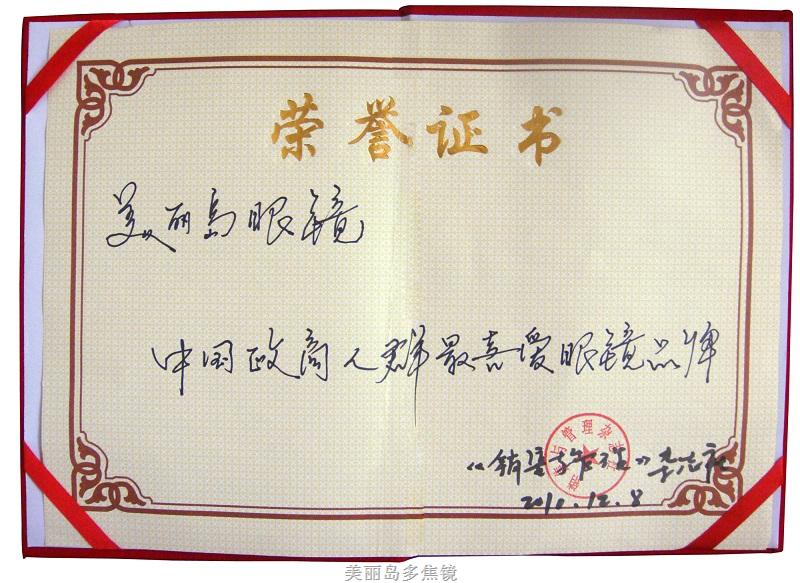 荣誉证书
美丽岛眼镜
中国政商人群最喜爱眼镜品牌
销售与管理杂志社
《销售与管理》杂志社
2010.12.8
美丽岛多焦镜